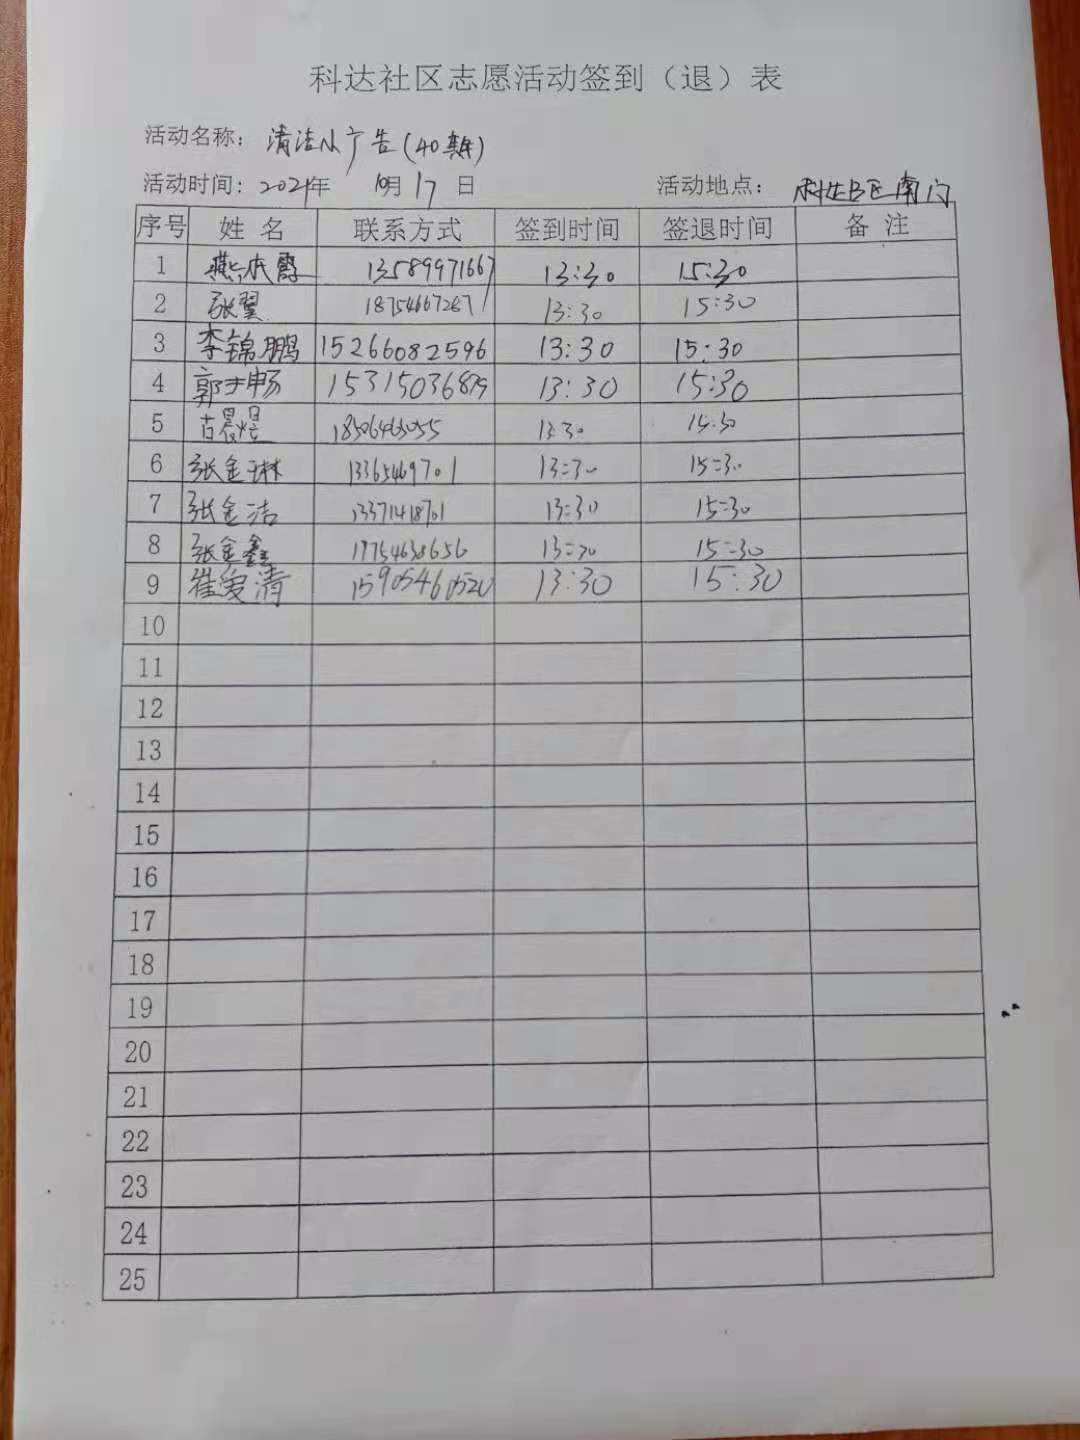 科达社区志愿活动签到（退）表
活动名称： 清洁小广告(40期)
活动时间：2021年 10月17日 活动地点： 科达B区南门
序号 姓名 联系方式 签到时间 签退时间 备注
1 燕 霞 13589971667 13:30 15:30
2 张翼 18754667267 13:30 15:30
3 李锦鹏 15266082596 13:30 15:30
4 郭 畅 15315036875 13:30 15:30
5 古晨煜 13:30 15:30
6 张金琳 13365469701 13:30 15:30
7 张金洁 13371418701 13:30 15:30
8 张金鑫 13:30 15:30
9 崔爱清 15905460520 13:30 15:30
10
11
12
13
14
15
16
17
18
19
20
21
22
23
24
25